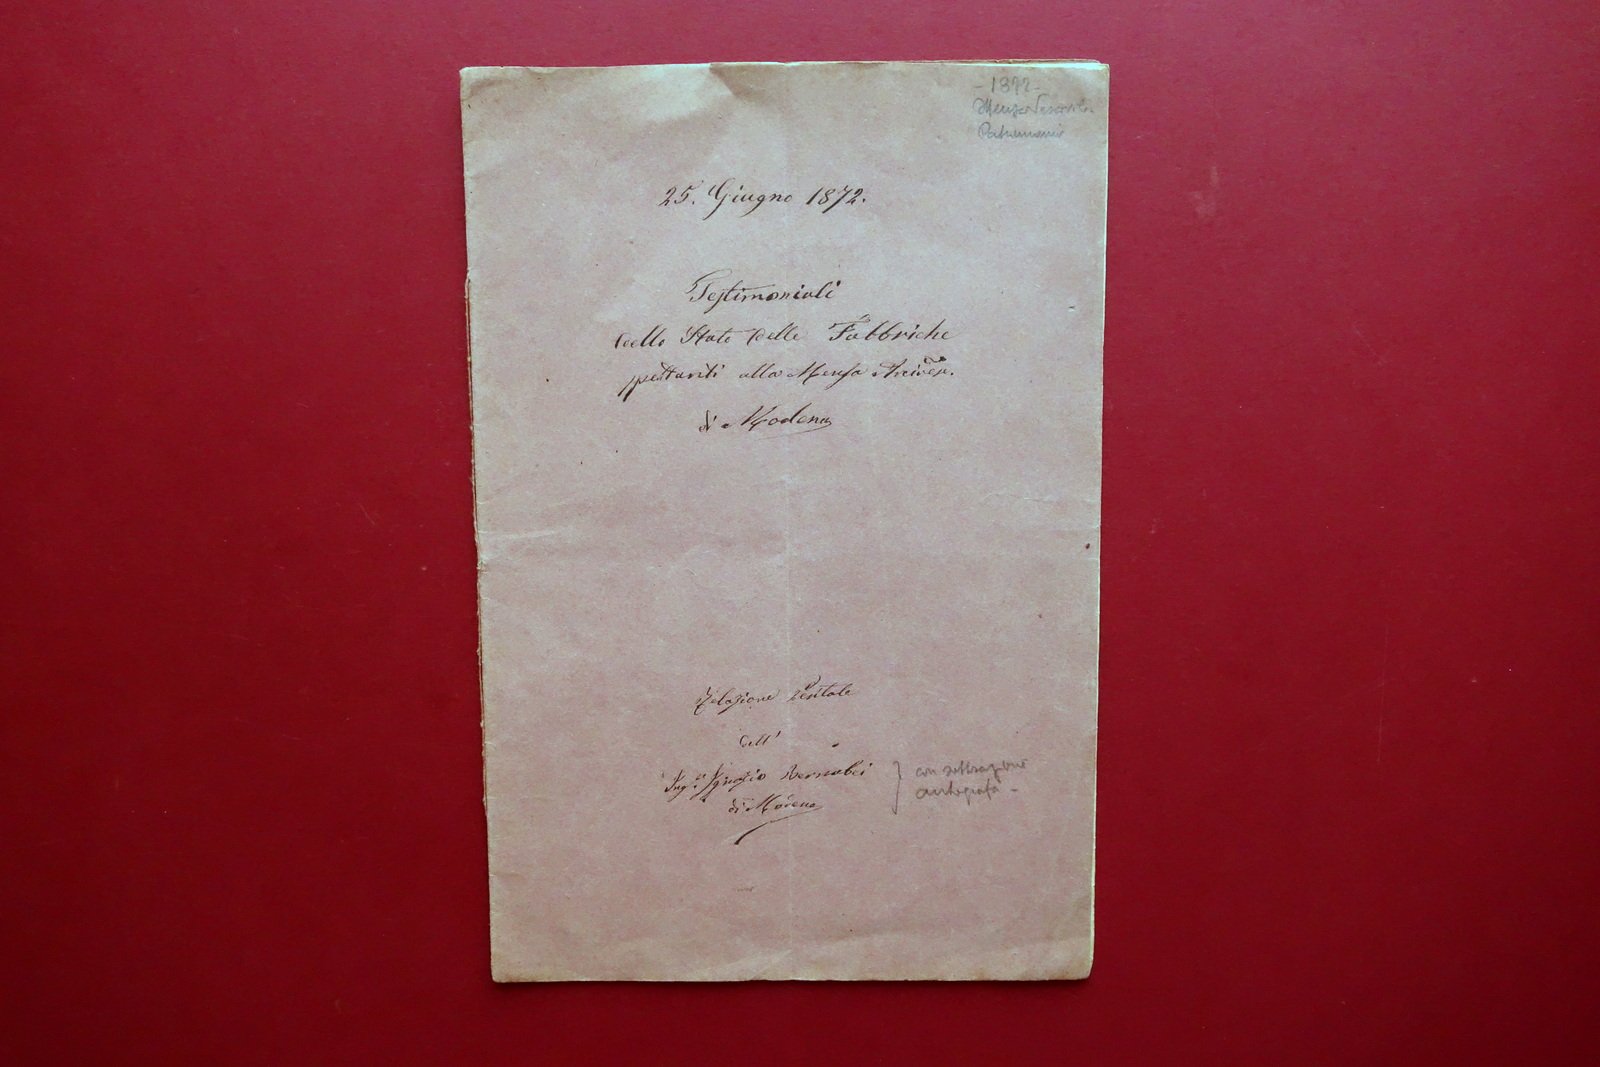 - 1872 -
Mensa Vescovile
Patrimonio
25. Giugno 1872.
Testimoniali
dello Stato delle Fabbriche
spettanti alla Mensa Arcives.
di Modena
Relazione Peritale
dell'
Ing.e Ignazio Bernabei
di Modena
con sottoscrizione
autografa -